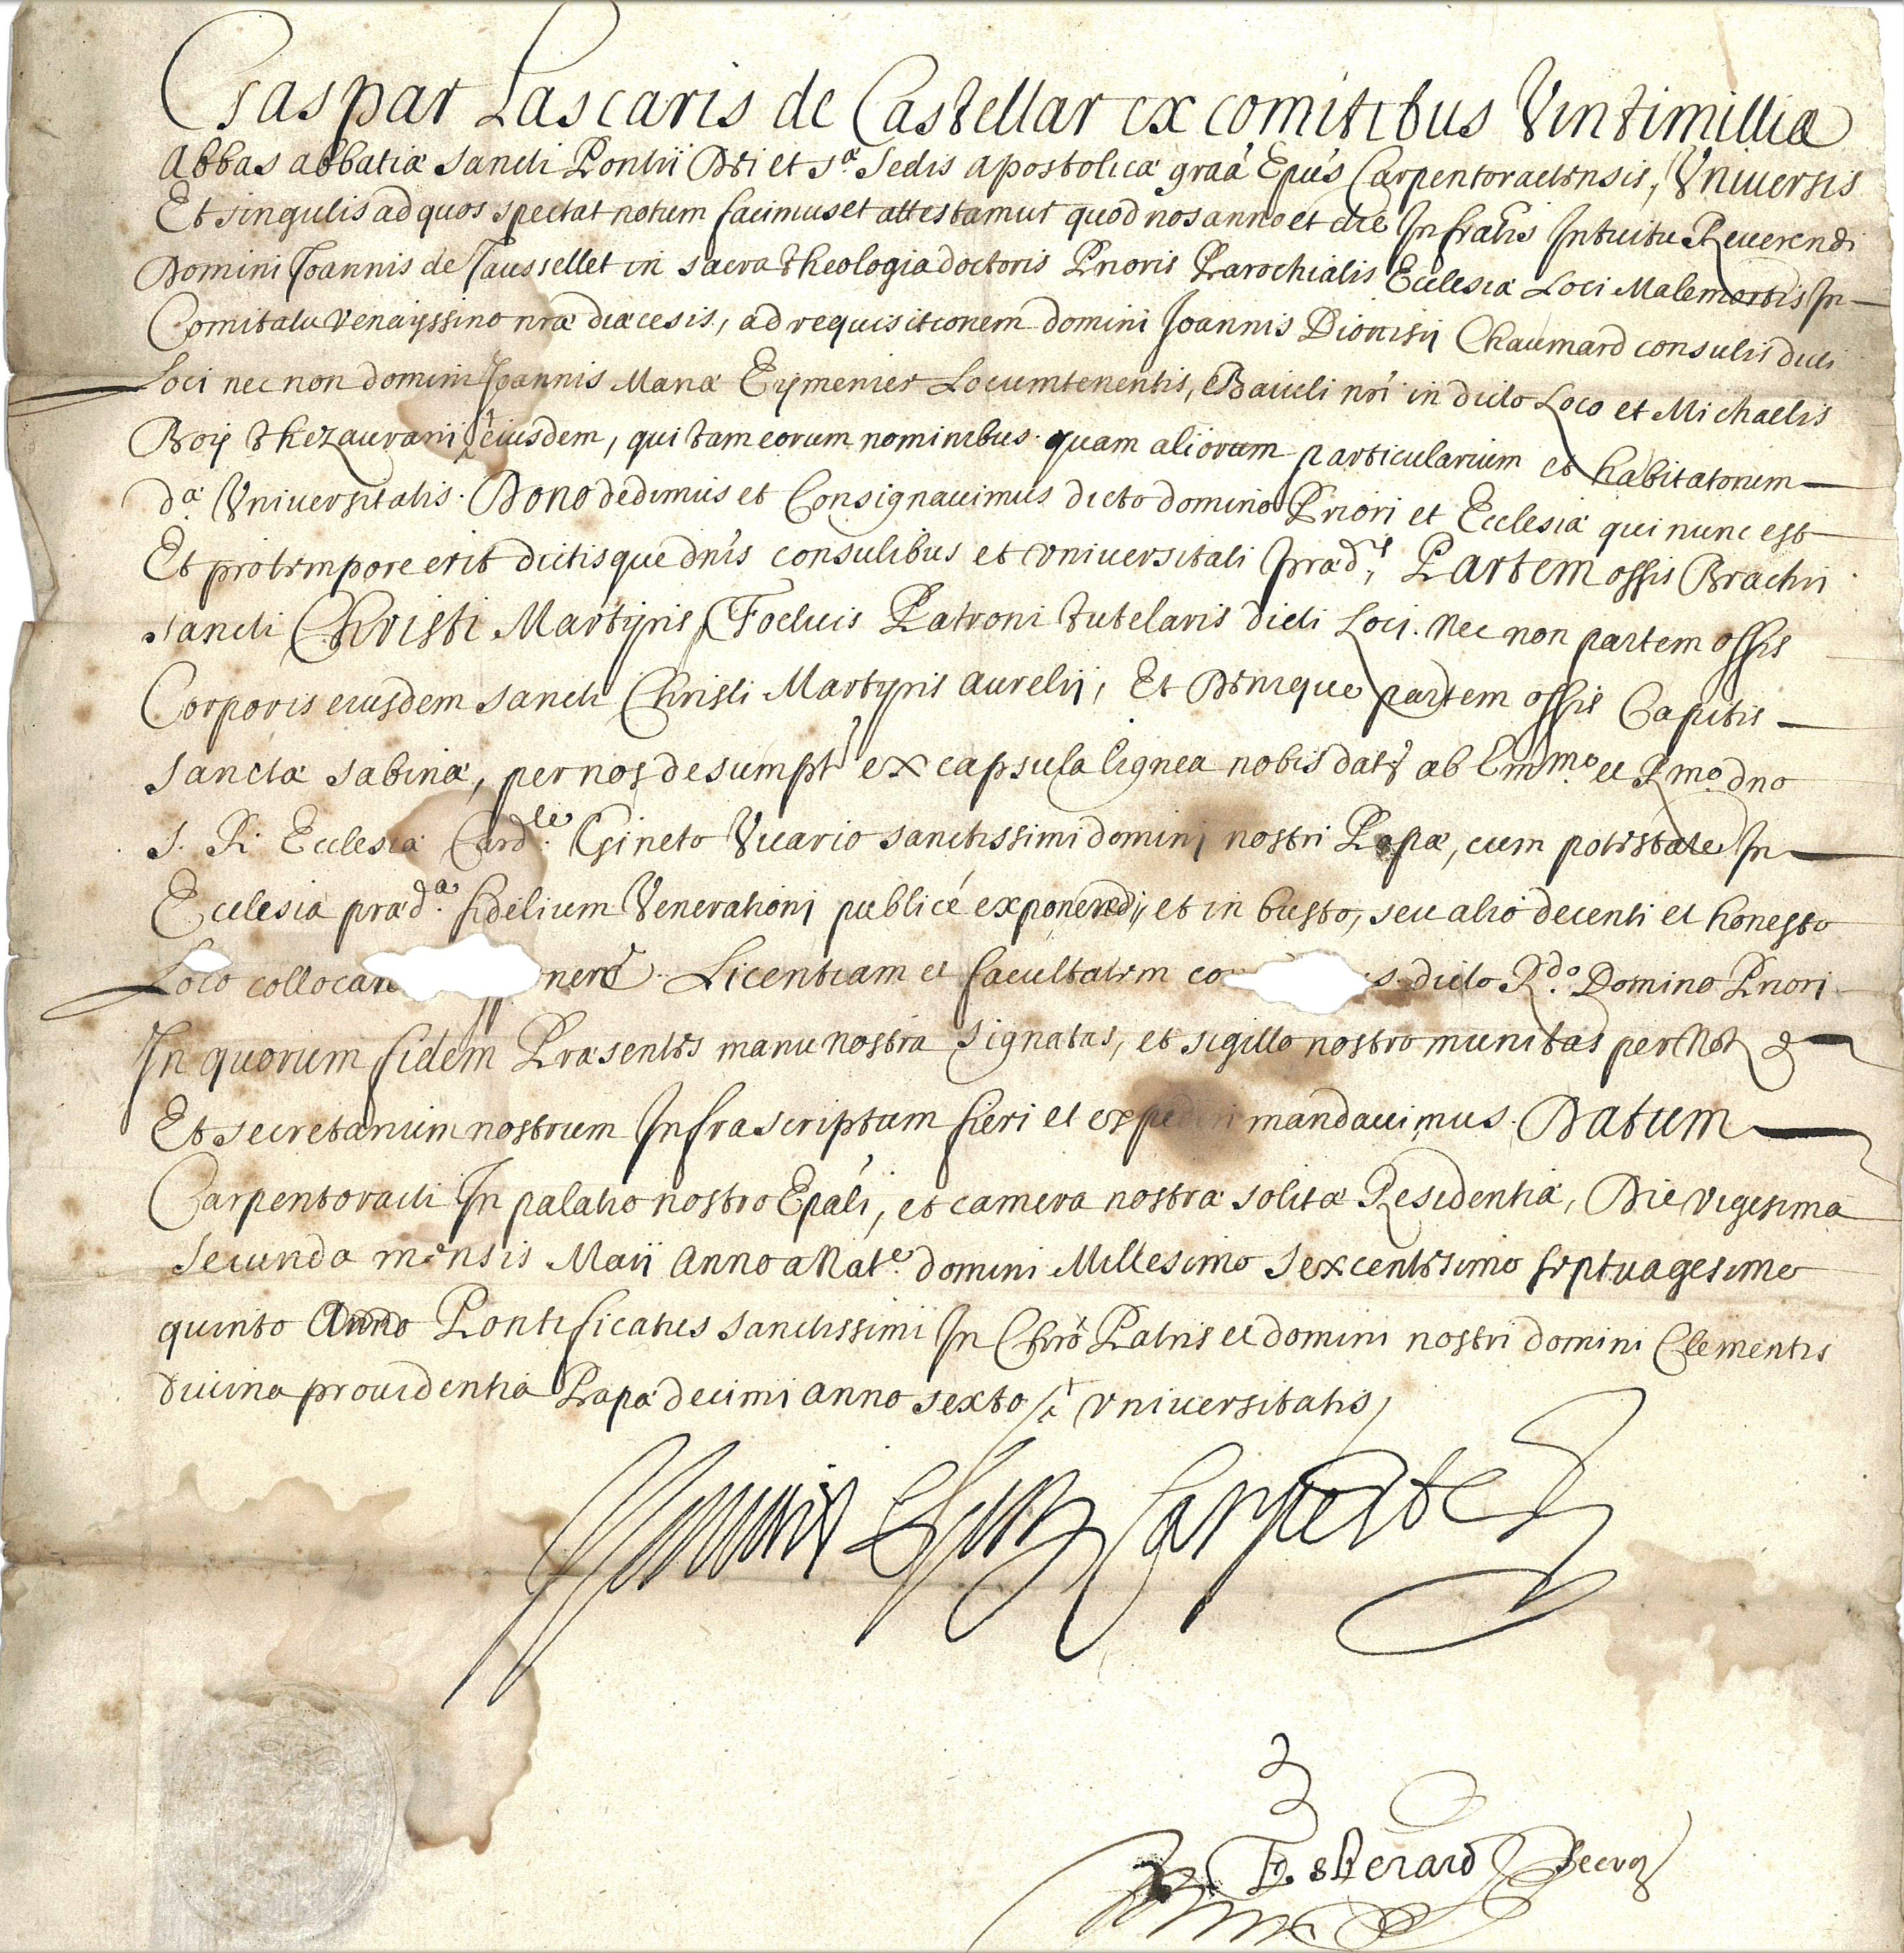 Gaspar Lascaris de Castellar ex comitibus Vintimilliæ
Abbas abbatiæ Sancti Pontii Dei et s.æ Sedis apostolicæ graâ Epûs Carpentoractensis, Universis
Et singulis ad quos spectat notum facimus et attestamur quod nos anno et die Infratis Intuitu Reverendi
Domini Joannis de Jaussellet in sacra theologia doctoris Prioris Parochialis Ecclesiæ Loci Malemortis In
Comitatu Venayssino nræ diœcesis, ad requisitionem domini Joannis Dionisii Chaumard consulis dicti
Loci nec non domini Joannis Mariæ Eymenier Locumtenentis, Baiuli nri in dicto Loco et Michaelis
Boÿ thezaurarii eiusdem, qui tam eorum nominibus quam aliorum particularium et habitatorum
dæ Universitatis. Dono dedimus et Consignauimus dicto domino Priori et Ecclesiæ qui nunc est
Et pro tempore erit dictisque dnis consulibus et universitati præd.s Partem ossis Brachii
sancti Christi Martyris Foeluis Patroni tutelaris dicti Loci. nec non partem ossis
Corporis eiusdem sancti Christi Martyris Aurelii, Et Denique partem ossis Capitis
Sanctæ Sabinæ, per nos desumpt ex capsula lignea nobis dat ab Emmo. et Rmo. dno
S. R. Ecclesiæ Card.le Gineto Vicario sanctissimi domini nostri Papæ, cum potestate In
Ecclesia præd.a fidelium Venerationi publicé exponendi, et in busto, seu alio decenti et honesto
Loco collocan nend. Licentiam et facultatem co s dicto Rdo. Domino Priori
In quorum fidem Præsentes manu nostra signatas, et sigillo nostro munitas per Not &
Et secretarium nostrum Infrascriptum fieri et expediri mandauimus. Datum
Carpentoracti In palatio nostro Epali, et camera nostræ solitæ Residentiæ, Die vigesima
secunda mensis Maii Anno a Nat.e domini Millesimo sexcentesimo septuagesimo
quinto Anno Pontificatus sanctissimi In Chro Patris et domini nostri domini Clementis
divina providentia Papæ decimi anno sexto universitatis
Carpente
Esberard Secr